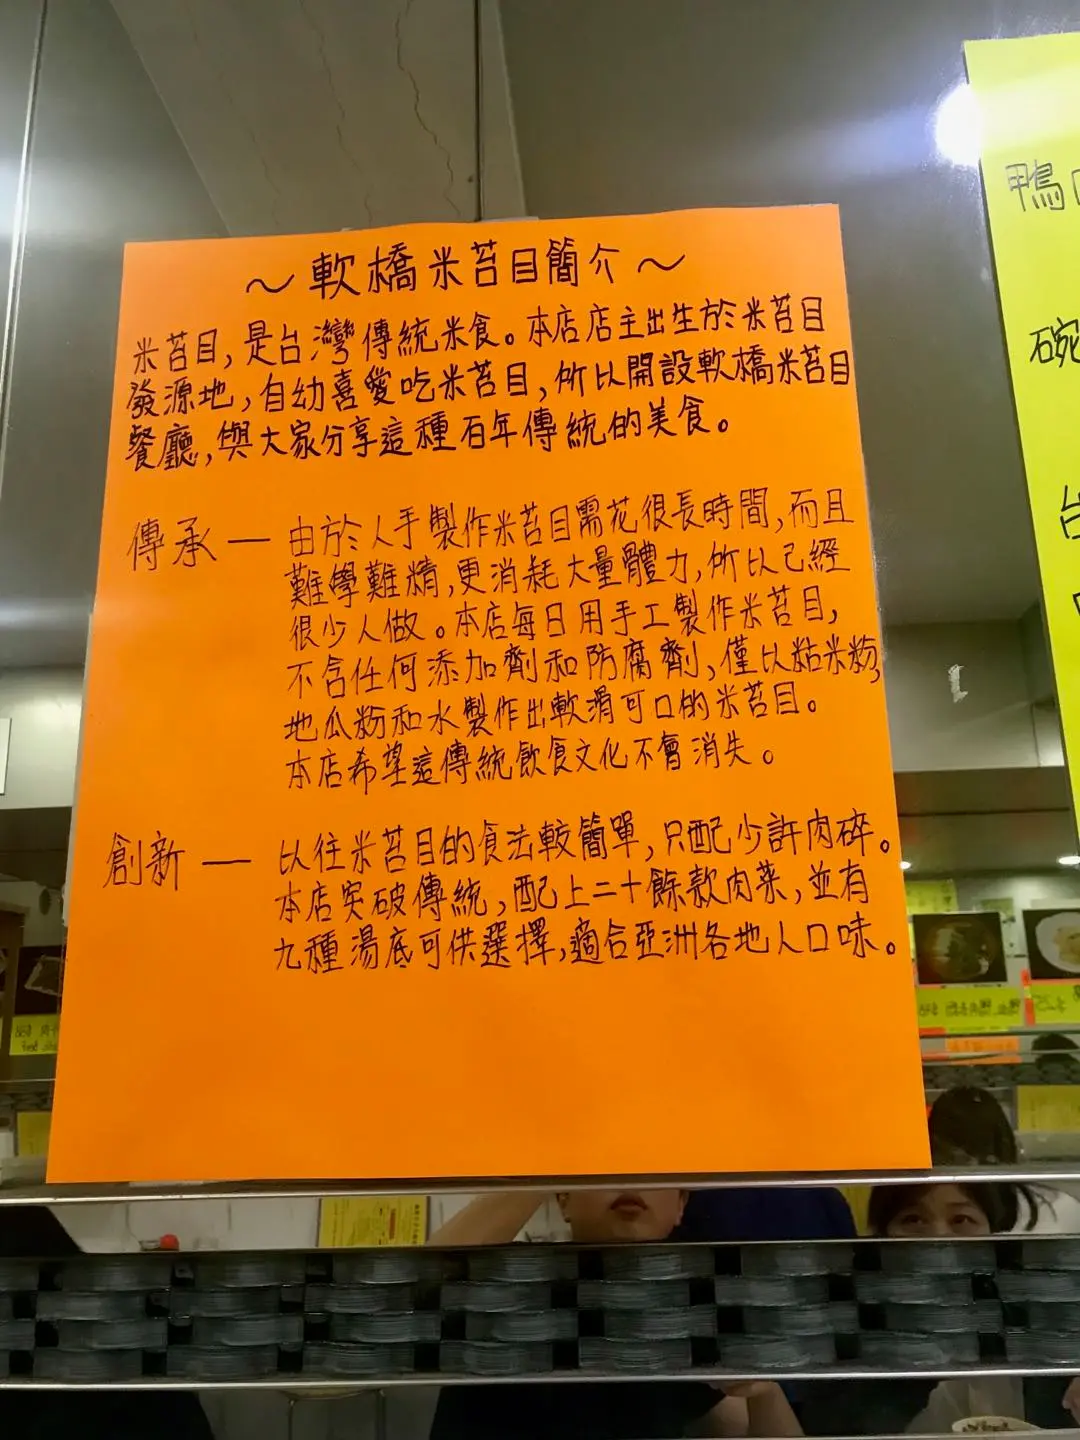 ～軟橋米苔目簡介～
米苔目，是台灣傳統米食。本店店主出生於米苔目
發源地，自幼喜愛吃米苔目，所以開設軟橋米苔目
餐廳，與大家分享這種百年傳統的美食。
傳承 — 由於人手製作米苔目需花很長時間，而且
難學難精，更消耗大量體力，所以已經
很少人做。本店每日用手工製作米苔目，
不含任何添加劑和防腐劑，僅以粘米粉，
地瓜粉和水製作出軟滑可口的米苔目。
本店希望這傳統飲食文化不會消失。
創新 — 以往米苔目的食法較簡單，只配少許肉碎。
本店突破傳統，配上二十餘款肉菜，並有
九種湯底可供選擇，適合亞洲各地人口味。
鴨
碗
台